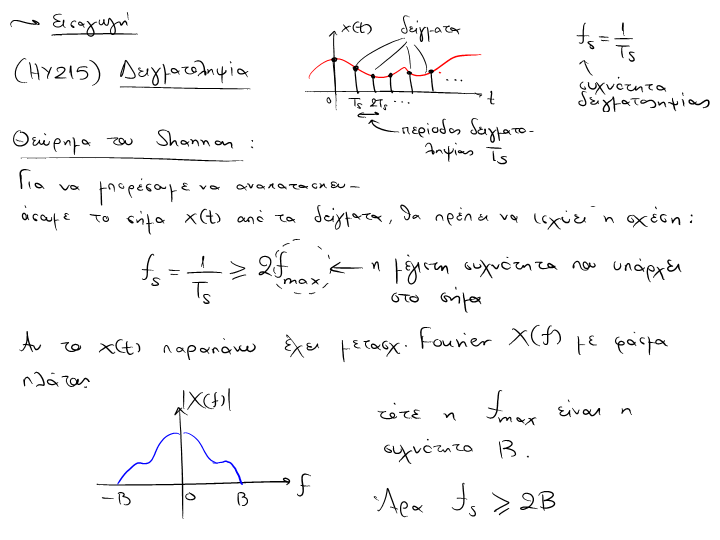 ~> Εισαγωγή
(HY215) Δειγματοληψία
x(t)
δείγματα
0 Ts 2Ts ... t
...
περίοδος δειγματο-
ληψίας Ts
fs = 1/Ts
συχνότητα
δειγματοληψίας
Θεώρημα του Shannon :
Για να μπορέσουμε να ανακατασκευ-
άσουμε το σήμα x(t) από τα δείγματα, θα πρέπει να ισχύει η σχέση:
fs = 1/Ts ≥ 2fmax ← η μέγιστη συχνότητα που υπάρχει
στο σήμα
Αν το x(t) παραπάνω έχει μετασχ. Fourier X(f) με φάσμα
πλάτος
|X(f)|
-B 0 B f
τότε η fmax είναι η
συχνότητα B.
Άρα fs ≥ 2B